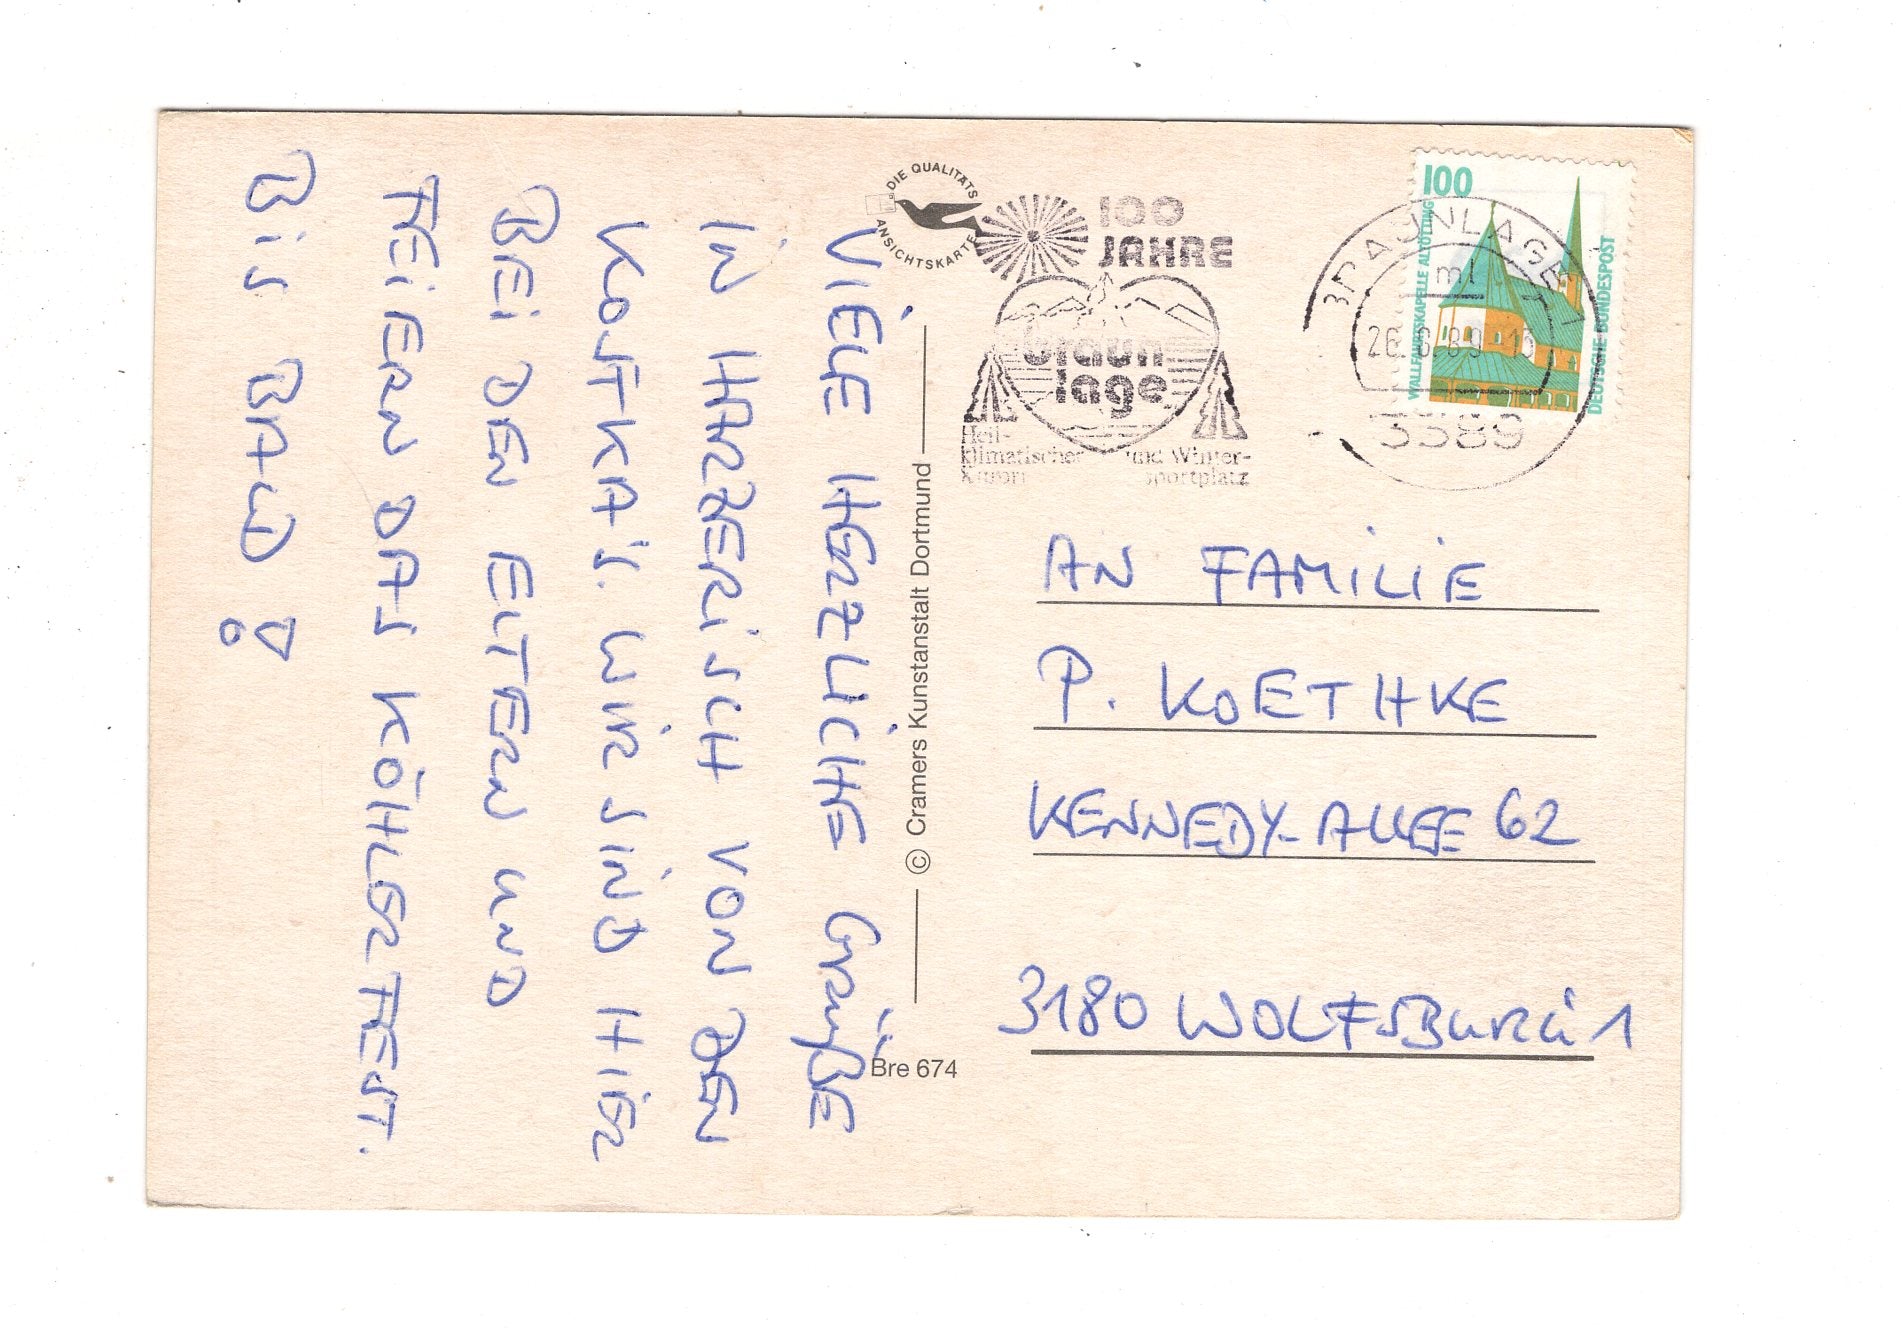 VIELE HERZLICHE GRÜßE
IN HARZERISCH VON DEN
KOSTKAS. WIR SIND HIER
BEI DEN ELTERN UND
FEIERN DAS KÖHLERFEST.
BIS BALD
DIE QUALITÄTS
ANSICHTSKARTE
100
JAHRE
braun
lage
Heil-
klimatischer und Winter-
Kurort sportplatz
BRAUNLAGE 1
ml
26. 6. 89 - 15
3389
100
WALLFAHRTSKAPELLE ALTÖTTING
DEUTSCHE BUNDESPOST
© Cramers Kunstanstalt Dortmund
Bre 674
AN FAMILIE
P. KOETHKE
KENNEDY-ALLEE 62
3180 WOLFSBURG 1